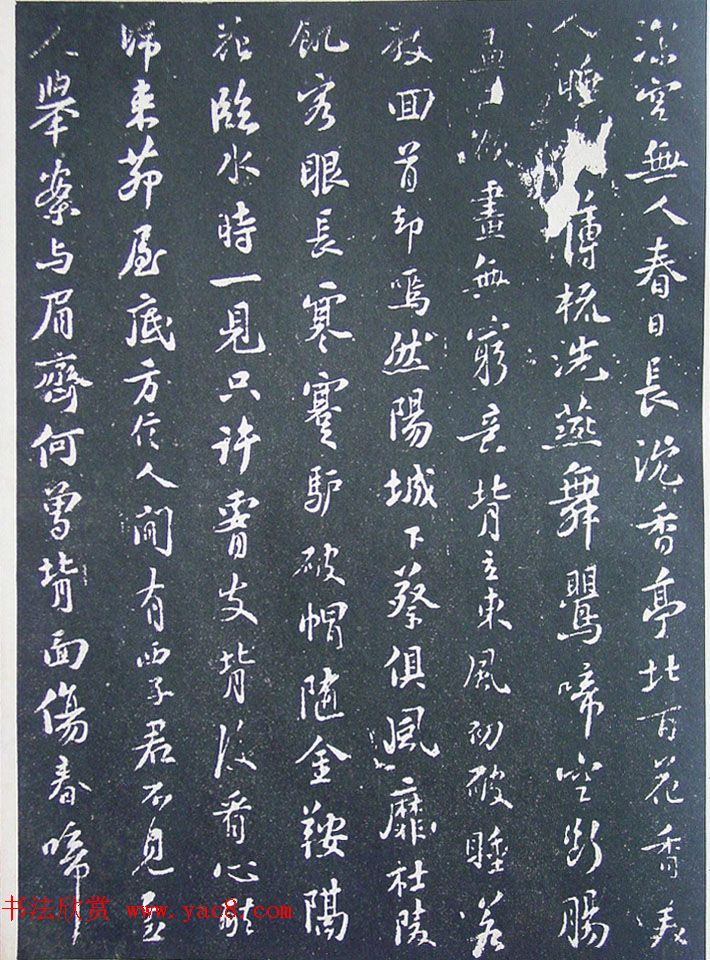 深宮無人春日長沈香亭北百花香美
人睡薄梳洗燕舞鶯啼空斷腸
畫無窮意背立東風初破睡若
教回首却嫣然陽城下蔡俱風靡杜陵
飢客眼長寒蹇驢破帽隨金鞍隔
花臨水時一見只許腰支背後看心醉
歸來茆屋底方信人間有西子君不見孟
光舉案与眉齊何曾背面傷春啼
书法欣赏 www.yac8.com